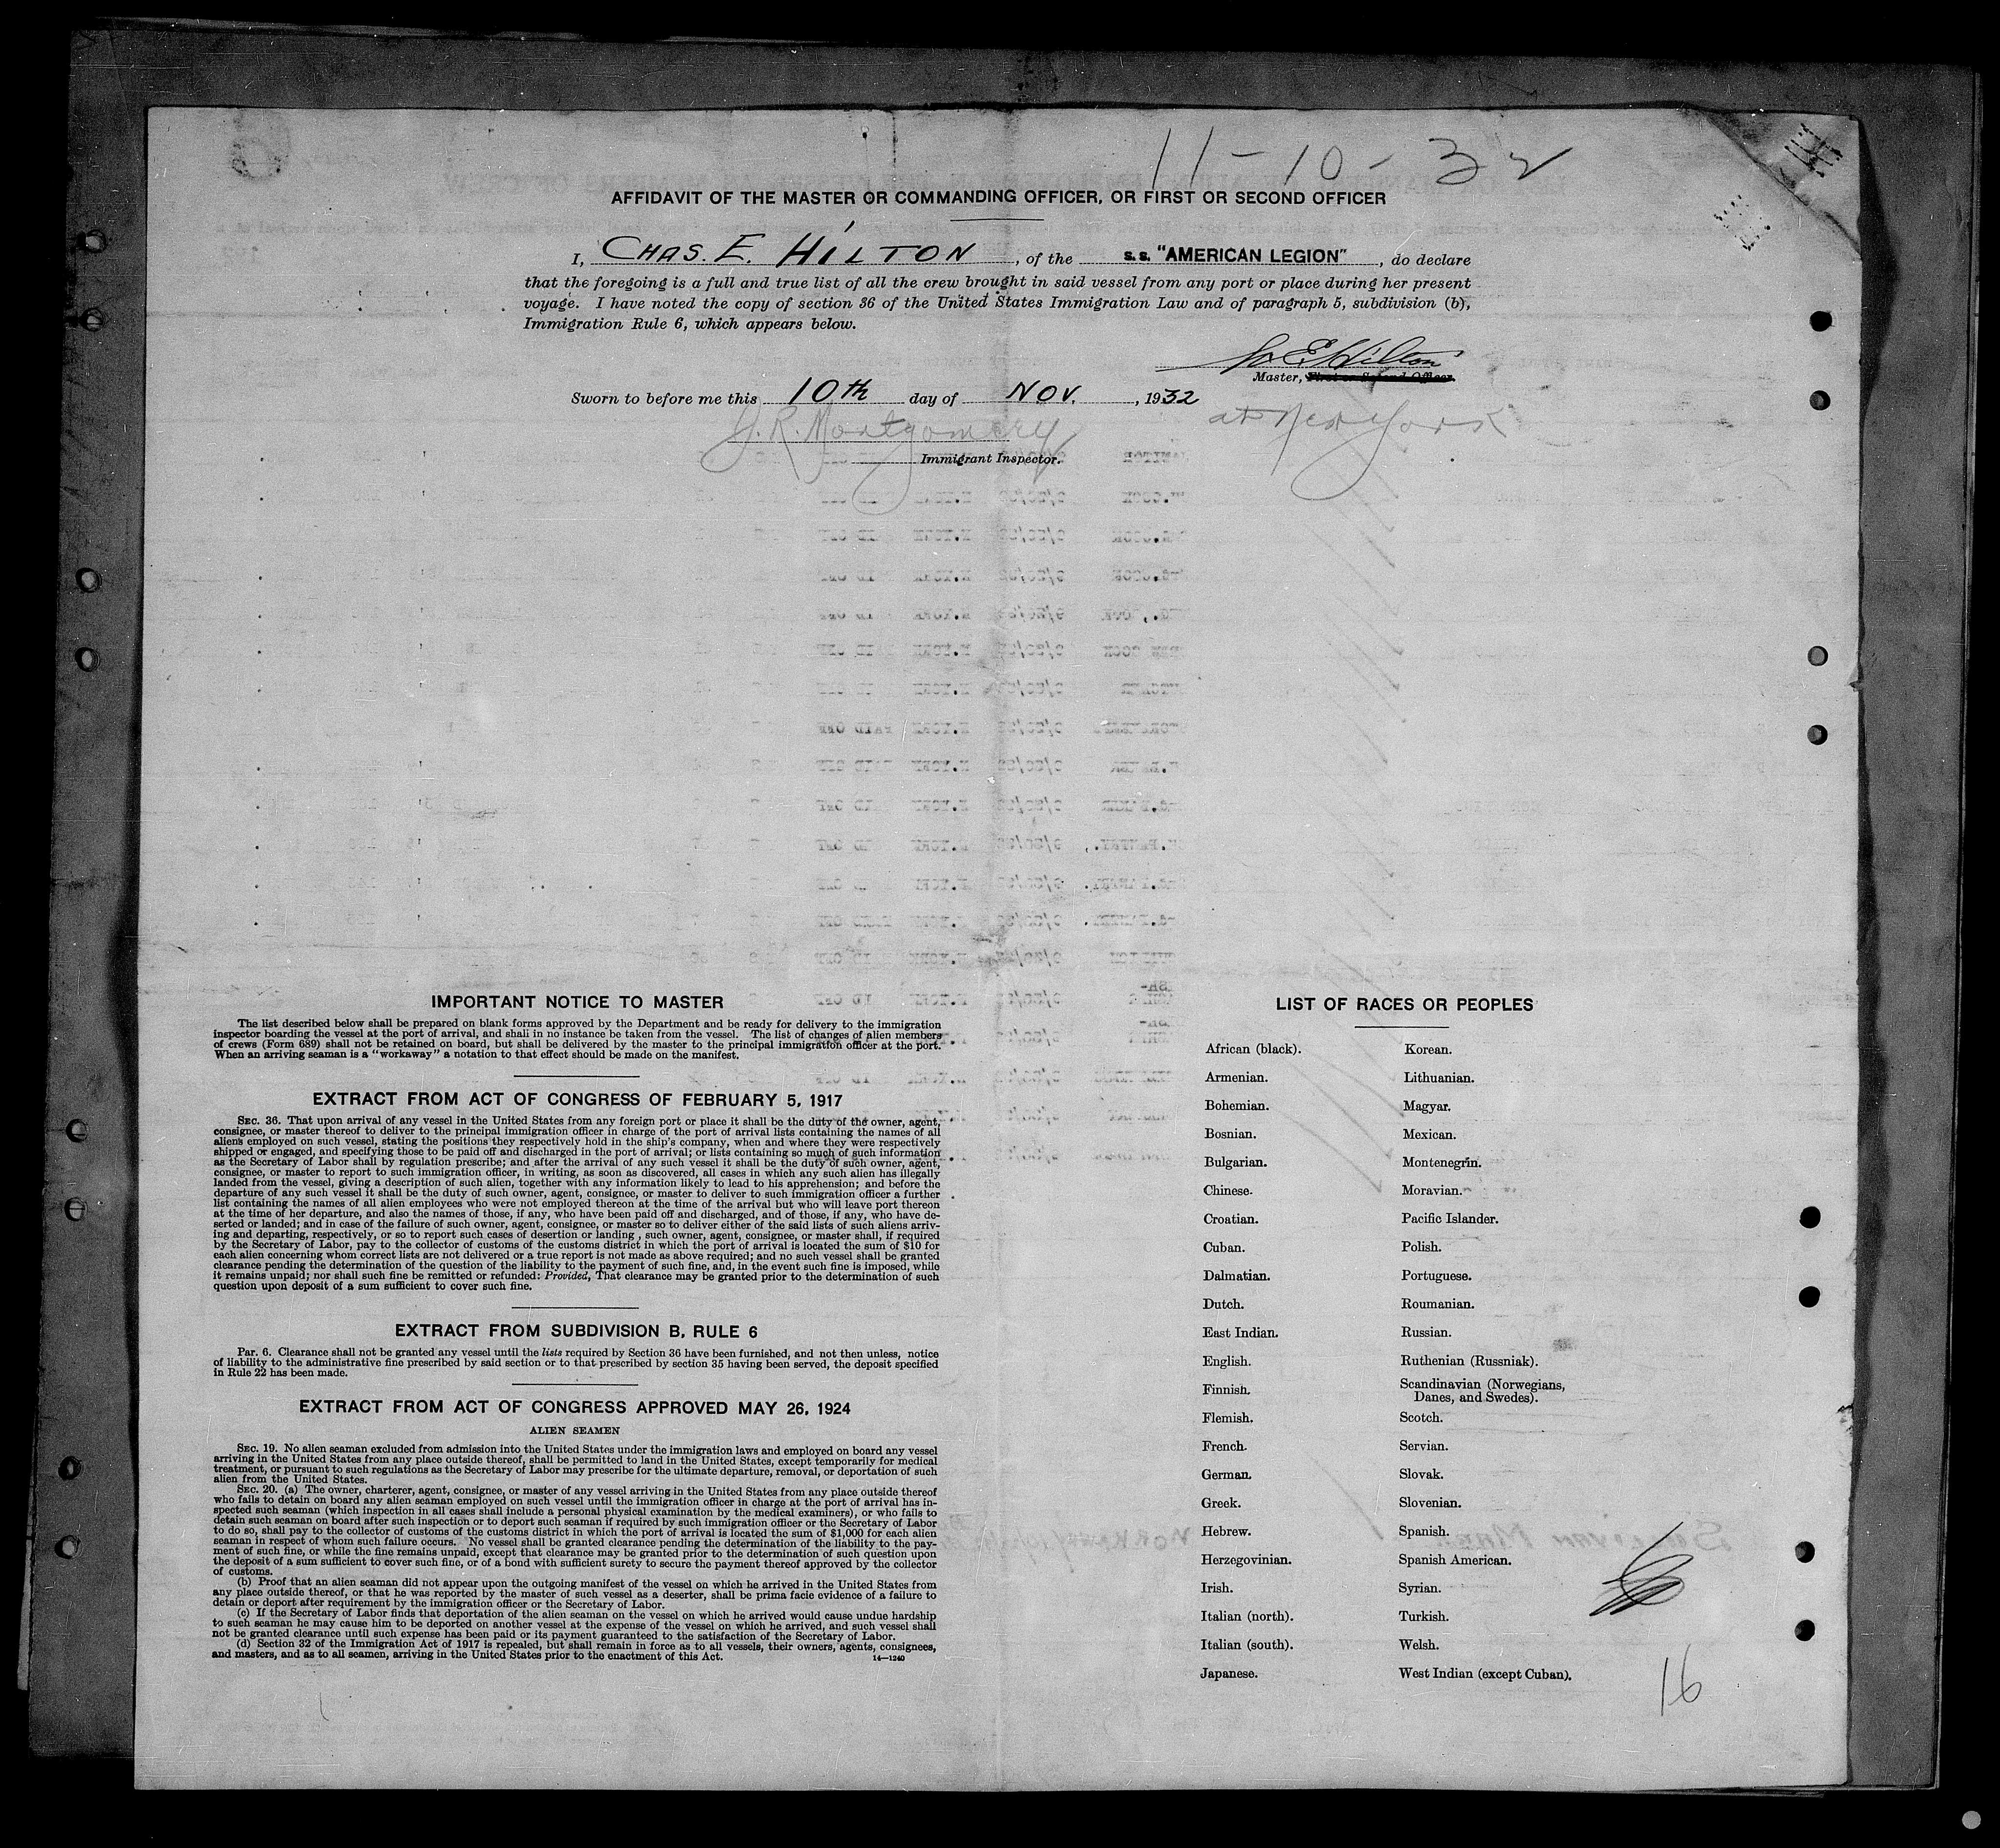 11-10-32
AFFIDAVIT OF THE MASTER OR COMMANDING OFFICER, OR FIRST OR SECOND OFFICER
I, CHAS. E. HILTON, of the s.s. "AMERICAN LEGION", do declare
that the foregoing is a full and true list of all the crew brought in said vessel from any port or place during her present
voyage. I have noted the copy of section 36 of the United States Immigration Law and of paragraph 5, subdivision (b),
Immigration Rule 6, which appears below.
E Hilton
Master, First or Second Officer.
Sworn to before me this 10th day of NOV., 1932
at New York
J. R. Montgomery
Immigrant Inspector.
IMPORTANT NOTICE TO MASTER
The list described below shall be prepared on blank forms approved by the Department and be ready for delivery to the immigration
inspector boarding the vessel at the port of arrival, and shall in no instance be taken from the vessel. The list of changes of alien members
of crews (Form 689) shall not be retained on board, but shall be delivered by the master to the principal immigration officer at the port.
When an arriving seaman is a "workaway" a notation to that effect should be made on the manifest.
EXTRACT FROM ACT OF CONGRESS OF FEBRUARY 5, 1917
SEC. 36. That upon arrival of any vessel in the United States from any foreign port or place it shall be the duty of the owner, agent,
consignee, or master thereof to deliver to the principal immigration officer in charge of the port of arrival lists containing the names of all
aliens employed on such vessel, stating the positions they respectively hold in the ship's company, when and where they were respectively
shipped or engaged, and specifying those to be paid off and discharged in the port of arrival; or lists containing so much of such information
as the Secretary of Labor shall by regulation prescribe; and after the arrival of any such vessel it shall be the duty of such owner, agent,
consignee, or master to report to such immigration officer, in writing, as soon as discovered, all cases in which any such alien has illegally
landed from the vessel, giving a description of such alien, together with any information likely to lead to his apprehension; and before the
departure of any such vessel it shall be the duty of such owner, agent, consignee, or master to deliver to such immigration officer a further
list containing the names of all alien employees who were not employed thereon at the time of the arrival but who will leave port thereon
at the time of her departure, and also the names of those, if any, who have been paid off and discharged, and of those, if any, who have de-
serted or landed; and in case of the failure of such owner, agent, consignee, or master so to deliver either of the said lists of such aliens arriv-
ing and departing, respectively, or so to report such cases of desertion or landing, such owner, agent, consignee, or master shall, if required
by the Secretary of Labor, pay to the collector of customs of the customs district in which the port of arrival is located the sum of $10 for
each alien concerning whom correct lists are not delivered or a true report is not made as above required; and no such vessel shall be granted
clearance pending the determination of the question of the liability to the payment of such fine, and, in the event such fine is imposed, while
it remains unpaid; nor shall such fine be remitted or refunded: Provided, That clearance may be granted prior to the determination of such
question upon deposit of a sum sufficient to cover such fine.
EXTRACT FROM SUBDIVISION B, RULE 6
PAR. 6. Clearance shall not be granted any vessel until the lists required by Section 36 have been furnished, and not then unless, notice
of liability to the administrative fine prescribed by said section or to that prescribed by section 35 having been served, the deposit specified
in Rule 22 has been made.
EXTRACT FROM ACT OF CONGRESS APPROVED MAY 26, 1924
ALIEN SEAMEN
SEC. 19. No alien seaman excluded from admission into the United States under the immigration laws and employed on board any vessel
arriving in the United States from any place outside thereof, shall be permitted to land in the United States, except temporarily for medical
treatment, or pursuant to such regulations as the Secretary of Labor may prescribe for the ultimate departure, removal, or deportation of such
alien from the United States.
SEC. 20. (a) The owner, charterer, agent, consignee, or master of any vessel arriving in the United States from any place outside thereof
who fails to detain on board any alien seaman employed on such vessel until the immigration officer in charge at the port of arrival has in-
spected such seaman (which inspection in all cases shall include a personal physical examination by the medical examiners), or who fails to
detain such seaman on board after such inspection or to deport such seaman if required by such immigration officer or the Secretary of Labor
to do so, shall pay to the collector of customs of the customs district in which the port of arrival is located the sum of $1,000 for each alien
seaman in respect of whom such failure occurs. No vessel shall be granted clearance pending the determination of the liability to the pay-
ment of such fine, or while the fine remains unpaid, except that clearance may be granted prior to the determination of such question upon
the deposit of a sum sufficient to cover such fine, or of a bond with sufficient surety to secure the payment thereof approved by the collector
of customs.
(b) Proof that an alien seaman did not appear upon the outgoing manifest of the vessel on which he arrived in the United States from
any place outside thereof, or that he was reported by the master of such vessel as a deserter, shall be prima facie evidence of a failure to
detain or deport after requirement by the immigration officer or the Secretary of Labor.
(c) If the Secretary of Labor finds that deportation of the alien seaman on the vessel on which he arrived would cause undue hardship
to such seaman he may cause him to be deported on another vessel at the expense of the vessel on which he arrived, and such vessel shall
not be granted clearance until such expense has been paid or its payment guaranteed to the satisfaction of the Secretary of Labor.
(d) Section 32 of the Immigration Act of 1917 is repealed, but shall remain in force as to all vessels, their owners, agents, consignees,
and masters, and as to all seamen, arriving in the United States prior to the enactment of this Act.
14—1240
LIST OF RACES OR PEOPLES
African (black). Korean.
Armenian. Lithuanian.
Bohemian. Magyar.
Bosnian. Mexican.
Bulgarian. Montenegrin.
Chinese. Moravian.
Croatian. Pacific Islander.
Cuban. Polish.
Dalmatian. Portuguese.
Dutch. Roumanian.
East Indian. Russian.
English. Ruthenian (Russniak).
Finnish. Scandinavian (Norwegians,
Danes, and Swedes).
Flemish. Scotch.
French. Servian.
German. Slovak.
Greek. Slovenian.
Hebrew. Spanish.
Herzegovinian. Spanish American.
Irish. Syrian.
Italian (north). Turkish.
Italian (south). Welsh.
Japanese. West Indian (except Cuban).
16